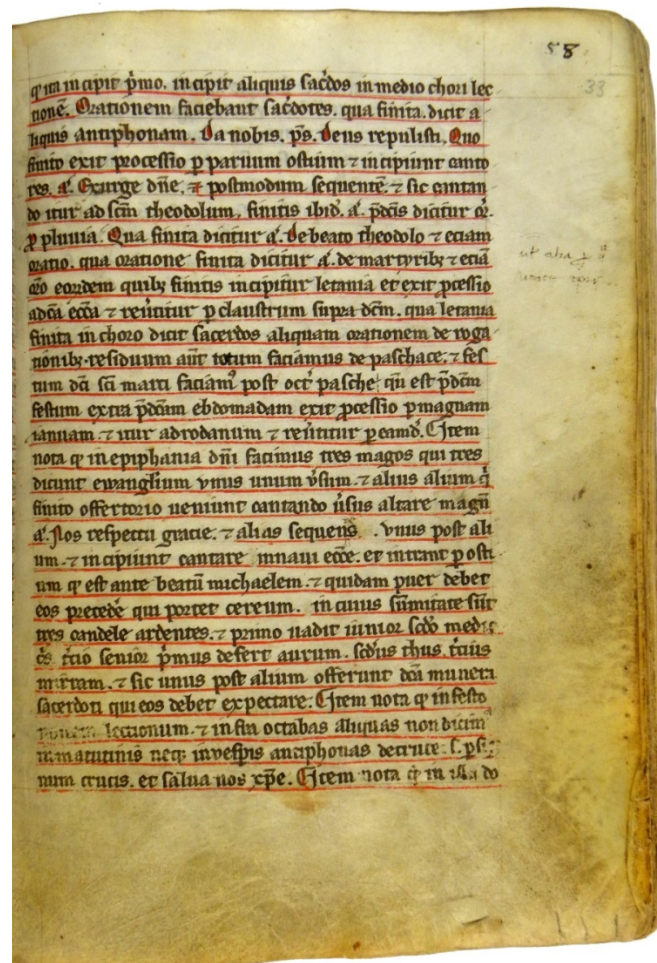 58
33
q' ita incipit p̄mo. incipit aliquis sac̄dos in medio chori lec
tionē. Orationem faciebant sac̄dotes. qua finita. dicit a
liquis antiphonam. Da nobis. p̄s. Deus repulisti. Quo
finito exit processio p paruum ostium ⁊ incipiunt canto
res. a'. Exurge dn̄e. ⁊ postmodum sequentē. ⁊ sic cantan
do itur ad sc̄m theodolum. finitis ibid'. a'. p̄dc̄is dicitur or̄.
p pluuia. Qua finita dicitur a'. de beato theodolo ⁊ eciam
oratio. qua oratione finita dicitur a'. de martyribz ⁊ eciā
or̄o eorūdem quibz finitis incipitur letania et exit p̄cessio
ad c̄a ecc̄a ⁊ reūtitur p claustrum supra dc̄m. qua letania
finita in choro dicit sacerdos aliquam orationem de roga
tionibz. residuum aut̄ totum faciamus de paschate. ⁊ fes
tum dc̄i sc̄i marci faciam' post oct' pasche. qn̄ est p̄dc̄m
festum extra p̄dc̄am ebdomadam exit p̄cessio p magnam
ianuam. ⁊ itur ad rodanum ⁊ reūtitur p eamd'. Item
nota q' in epiphania dn̄i facimus tres magos qui tres
dicunt ewanglium vnus unum v̄sum. ⁊ alius alium q'
finito offertorio ueniunt cantando ūsus altare magn̄
a'. Nos respectu gracie. ⁊ alias sequens. vnus post ali
um. ⁊ incipiunt cantare in naui ecc̄e. et intrant p osti
um q' est ante beatū michaelem. ⁊ quidam puer debet
eos precedē qui portet cereum. in cuius sūmitate sūt
tres candele ardentes. ⁊ primo uadit iunior sc̄do medi
c̄s t'cio senior p̄mus defert aurum. sc̄dus thus. t'cius
mirram. ⁊ sic unus post alium offerunt dc̄a munera
sacerdoti qui eos debet expectare. Item nota q' in festo
lectionum. ⁊ infra octabas aliquas non dicim'
in matutinis neq; in vesp̄is antiphonas de cruce. s. p si
num crucis. et salua nos xp̄e. Item nota q' in illa do